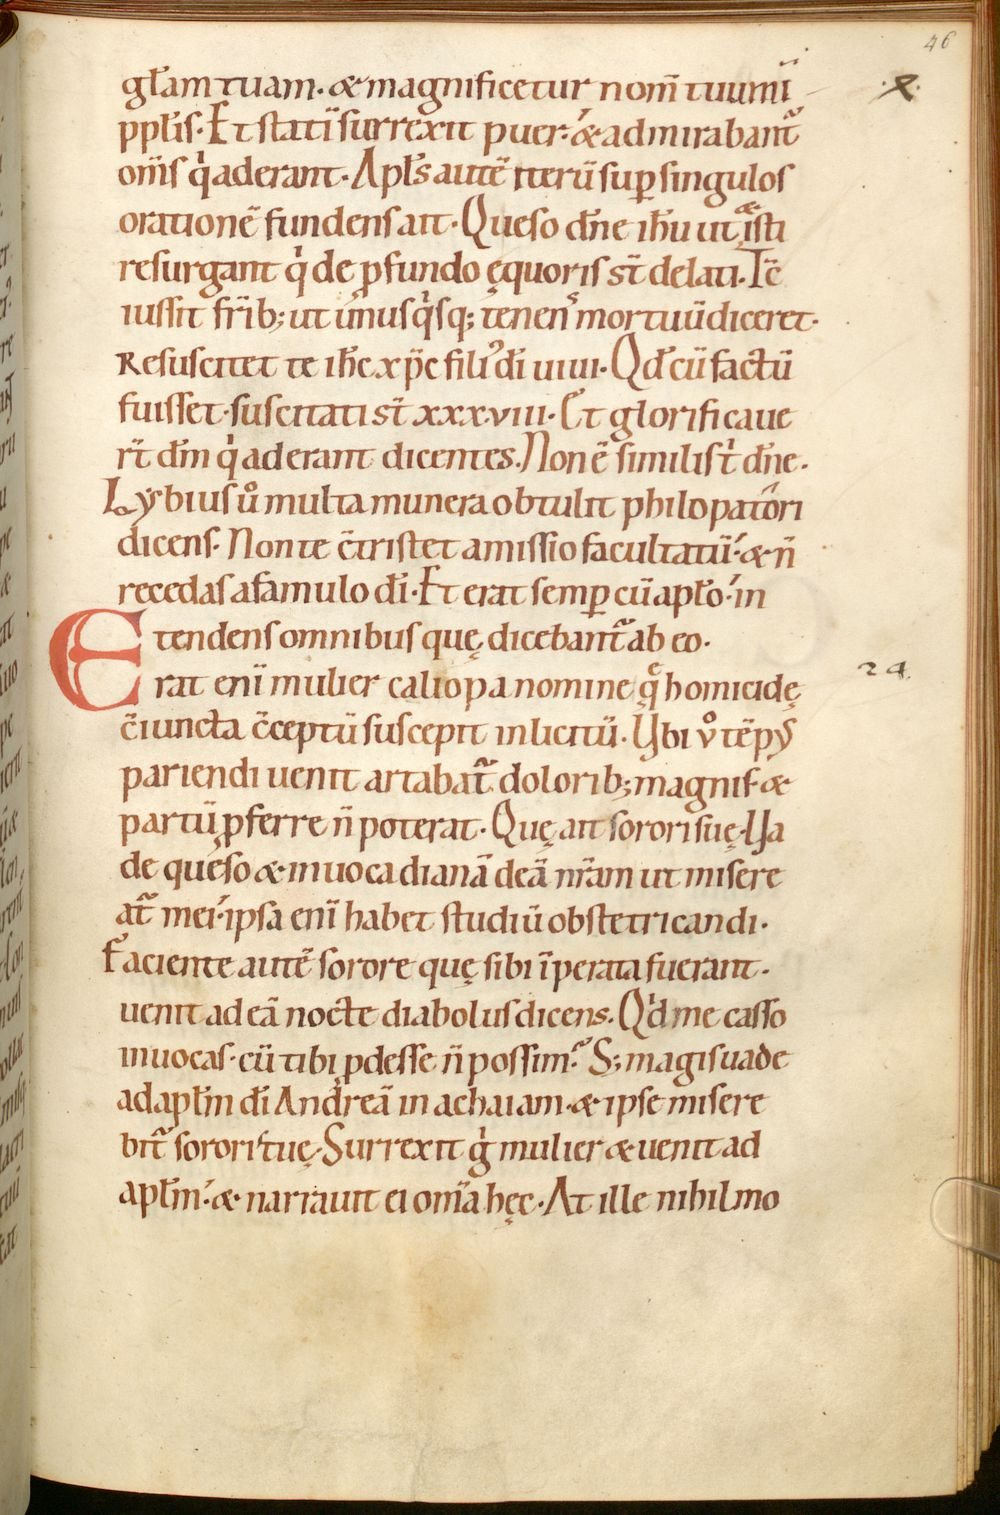 46
gl̄am tuam. & magnificetur nom̄ tuum ī
ppl̄is. Et statī surrexit puer. & admirabant᷑
om̄s q̇ aderant. Apl̄s autē iterū sup singulos
orationē fundens ait. Queso dn̄e ih̄u ut & isti
resurgant q̇ de pfundo ęquoris st̄ delati. Tc̄
iussit fr̄ib; ut unusq̇sq; tenens mortuū diceret.
Resuscitet te ih̄c xp̄c filius dī uiui. Qd̄ cū factū
fuisset. suscitati st̄ xxx.viii. Et glorificaue
rt̄ dm̄ q̇ aderant dicentes. Non ē similis tī dn̄e.
Lẏbius uº multa munera obtulit philopatori
dicens. Non te c̄tristet amissio facultatū. & n̄
recedas a famulo dī. Et erat semp cū apl̄o. in
tendens omnibus quę dicebant᷑ ab eo.
24.
Erat enī mulier caliopa nomine q̨ homicidę
c̄iuncta c̄ceptū suscepit inlicitū. Ubi vº tēpꝰ
pariendi uenit artabat᷑ dolorib; magnis. &
partū pferre n̄ poterat. Quę ait sorori suę. Ua
de queso & inuoca dianā deā nr̄am ut misere
at᷑ mei. ipsa enī habet studiū obstetricandi.
Faciente autē sorore quę sibi īperata fuerant.
uenit ad eā nocte diabolus dicens. Qḋ me casso
inuocas. cū tibi pdesse n̄ possim? S; magis uade
ad apl̄m dī Andreā in achaiam. & ipse misere
bit᷑ sorori tuę. Surrexit g̊ mulier & uenit ad
apl̄m. & narrauit ei om̄a hęc. At ille nihil mo